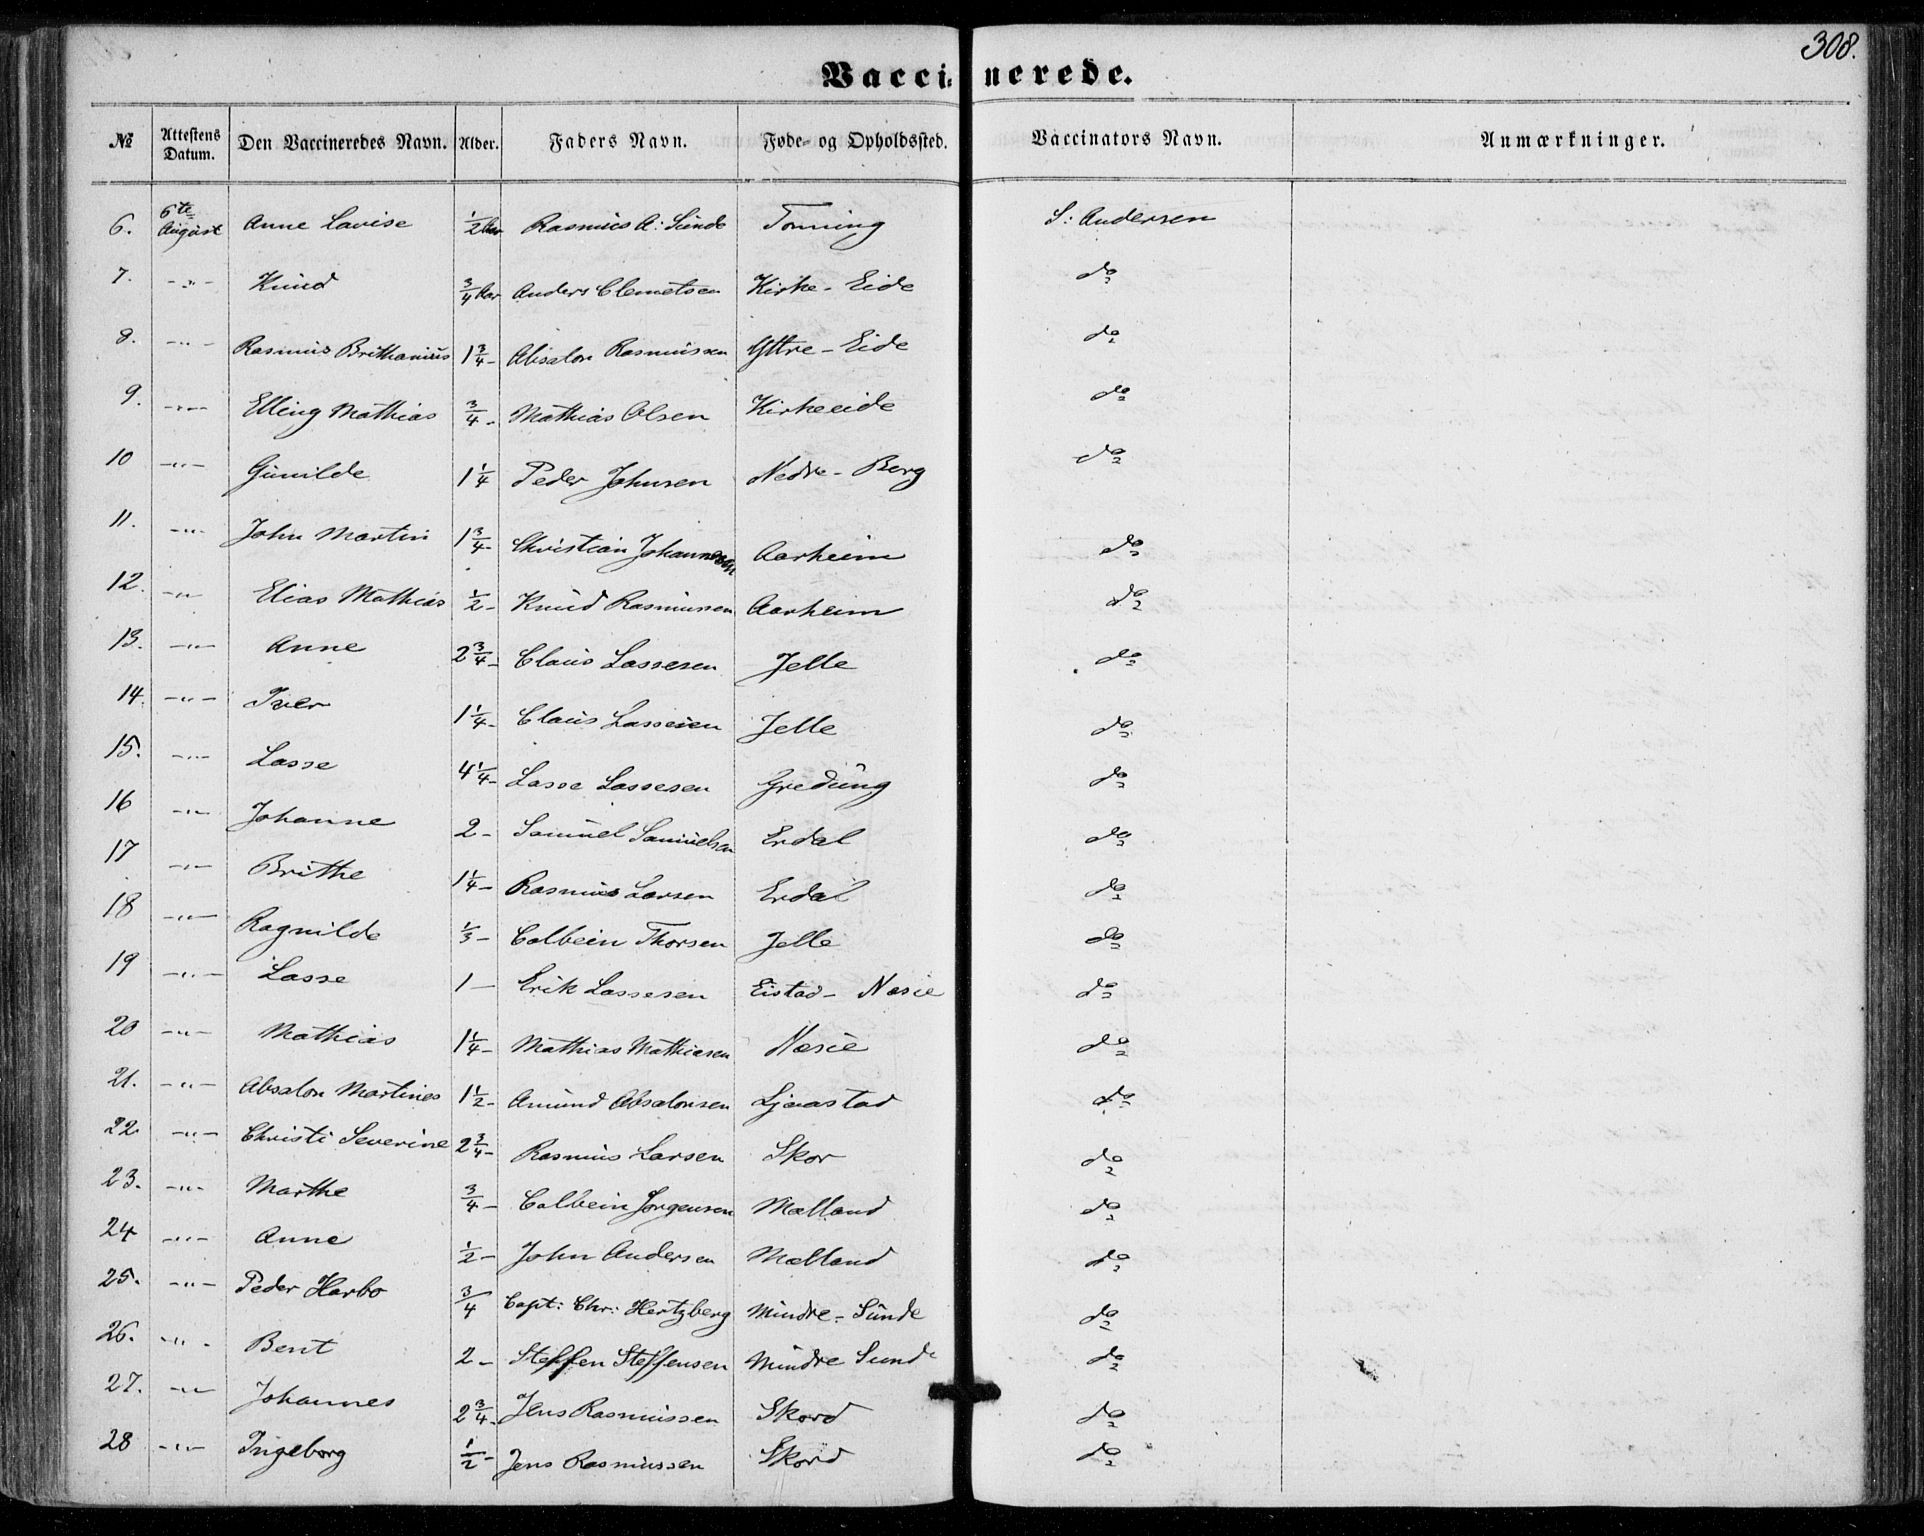 308.
Vaccinerede.
№ Attestens Datum. Den Vaccineredes Navn. Alder. Faders Navn. Føde- og Opholdssted. Vaccinators Navn. Anmærkninger.
6. 6te August Anne Lovise 1/2 Aar Rasmus A: Sunde Tonning S: Andersen
7. -"- Knud 3/4 Aar Anders Clemetsen Kirke-Eide do
8. -"- Rasmus Brithanius 1 3/4- Absalon Rasmussen Yttre-Eide do
9. -"- Elling Mathias 3/4- Mathias Olsen Kirkeeide do
10 -"- Gunilde 1 1/4 Peder Johnsen Nedre-Berg do
11. -"- John Martin 1 3/4- Christian Johannesen Aarheim do
12. -"- Elias Mathias 1/2- Knud Rasmussen Aarheim do
13. -"- Anne 2 3/4- Claus Lassesen Jelle do
14. -"- Iver 1 1/4- Claus Lassesen Jelle do
15. -"- Lasse 4 1/4- Lasse Lassesen Gredung do
16 -"- Johanne 2- Samuel Samuelsen Erdal do
17 -"- Brithe 1 1/4- Rasmus Larsen Erdal do
18 -"- Ragnilde 1/3- Colbein Thorsen Jelle do
19 -"- Lasse 1- Erik Lassesen Eistad- Nesie do
20 -"- Mathias 1 1/4- Mathias Mathiasen Nesie do
21. -"- Absalon Martines 1 1/2- Amund Absalonsen Ljaastad do
22. -"- Christi Severine 2 3/4- Rasmus Larsen Skor do
23. -"- Marthe 3/4- Colbein Jørgensen Mælland do
24 -"- Anne 1/2- John Andersen Mælland do
25. -"- Peder Harbo 3/4 Capt: Chr: Hertzberg Mindre-Sunde do
26. -"- Bent 2- Steffen Steffensen Mindre Sunde do
27. -"- Johannes 2 3/4- Jens Rasmussen Skord do
28 -"- Ingeborg 1/2- Jens Rasmussen Skord do